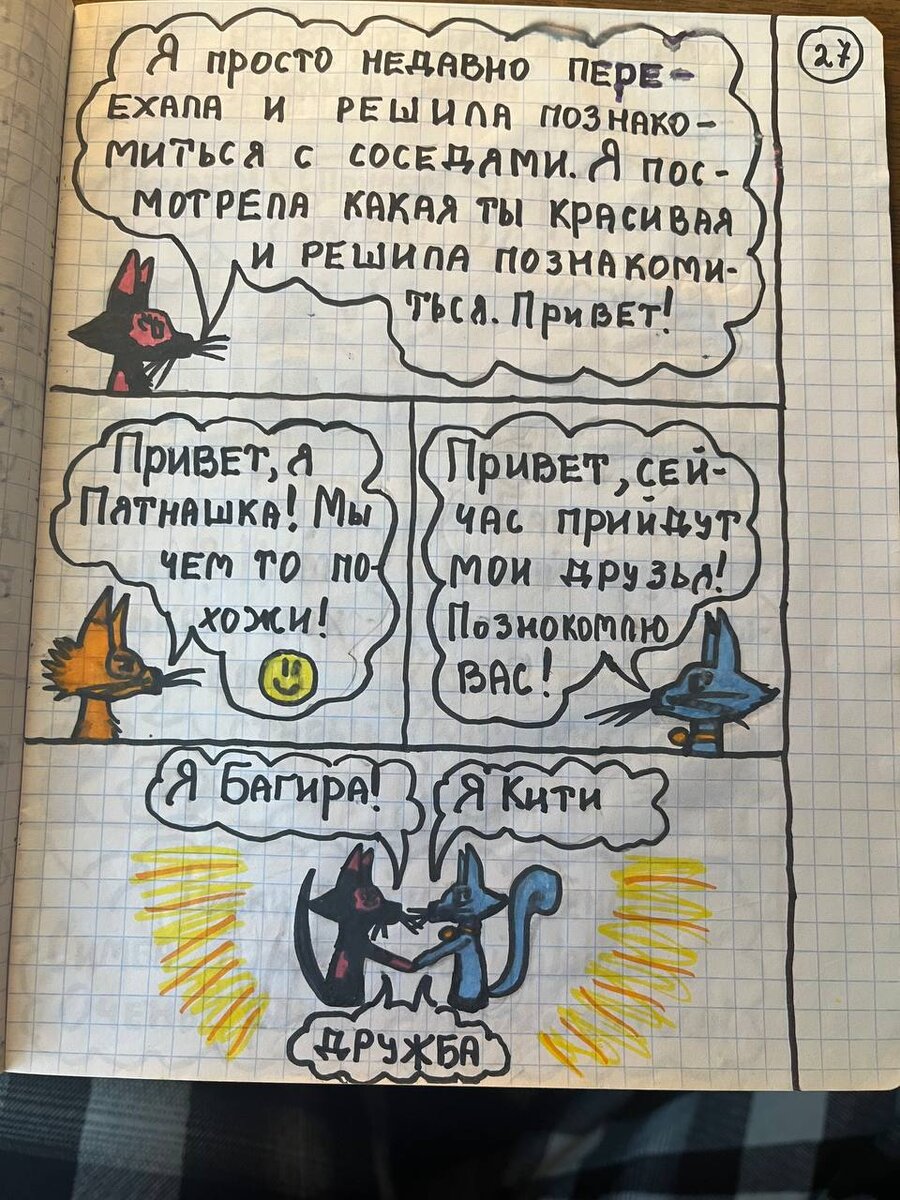 27
Я просто недавно пере-
ехала и решила познако-
миться с соседями. Я пос-
мотрела какая ты красивая
и решила познакоми-
ться. Привет!
Привет, я
Пятнашка! Мы
чем то по-
хожи!
Привет, сей-
час прийдут
мои друзья!
Познокомлю
вас!
Я Багира!
Я Кити
дружба